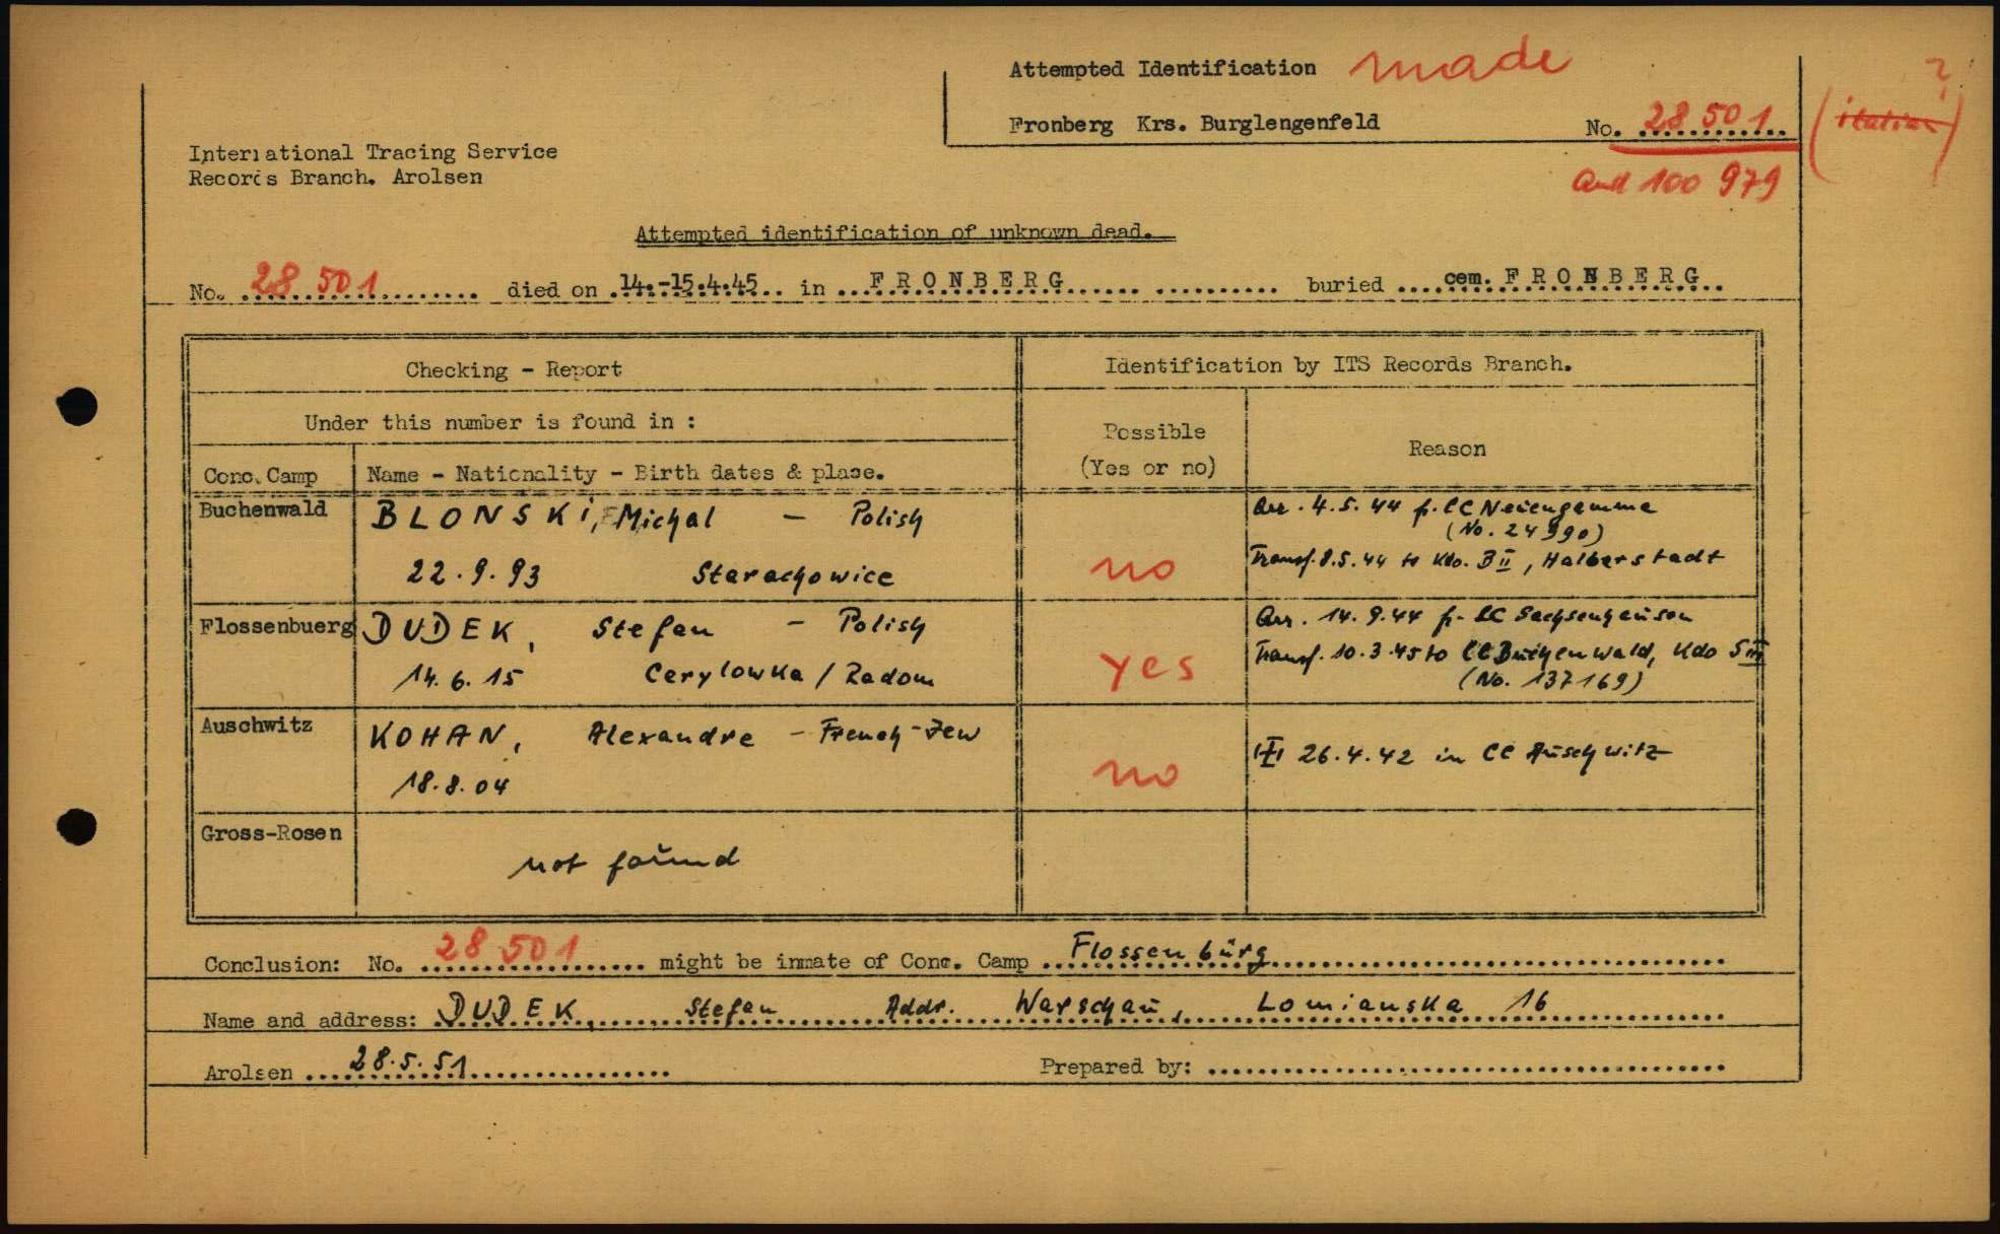 Attempted Identification made
Fronberg Krs. Burglengenfeld No. 28 501 (italian) ?
and 100 979
International Tracing Service
Records Branch. Arolsen
Attempted identification of unknown dead.
No. 28 501 died on 14.-15.4.45 in FRONBERG buried cem. FRONBERG
Checking - Report Identification by ITS Records Branch.
Under this number is found in :
Possible
(Yes or no) Reason
Conc. Camp Name - Nationality - Birth dates & place.
Buchenwald BLONSKI, Michal - Polish Arr. 4.5.44 fr. CC Neuengamme
(No. 24990)
22.9.93 Starachowice no Transf. 8.5.44 to Kdo. B II, Halberstadt
Flossenbuerg DUDEK, Stefan - Polish Arr. 14.9.44 fr. CC Sachsenhausen
14.6.15 Cerylowka / Radom yes Transf. 10.3.45 to CC Buchenwald, Kdo S III
(No. 137169)
Auschwitz KOHAN, Alexandre - French-Jew
18.8.04 no 26.4.42 in CC Auschwitz
Gross-Rosen
not found
Conclusion: No. 28 501 might be inmate of Conc. Camp Flossenbürg
Name and address: DUDEK, Stefan Addr. Warschau, Lomianska 16
Arolsen 28.5.51 Prepared by: